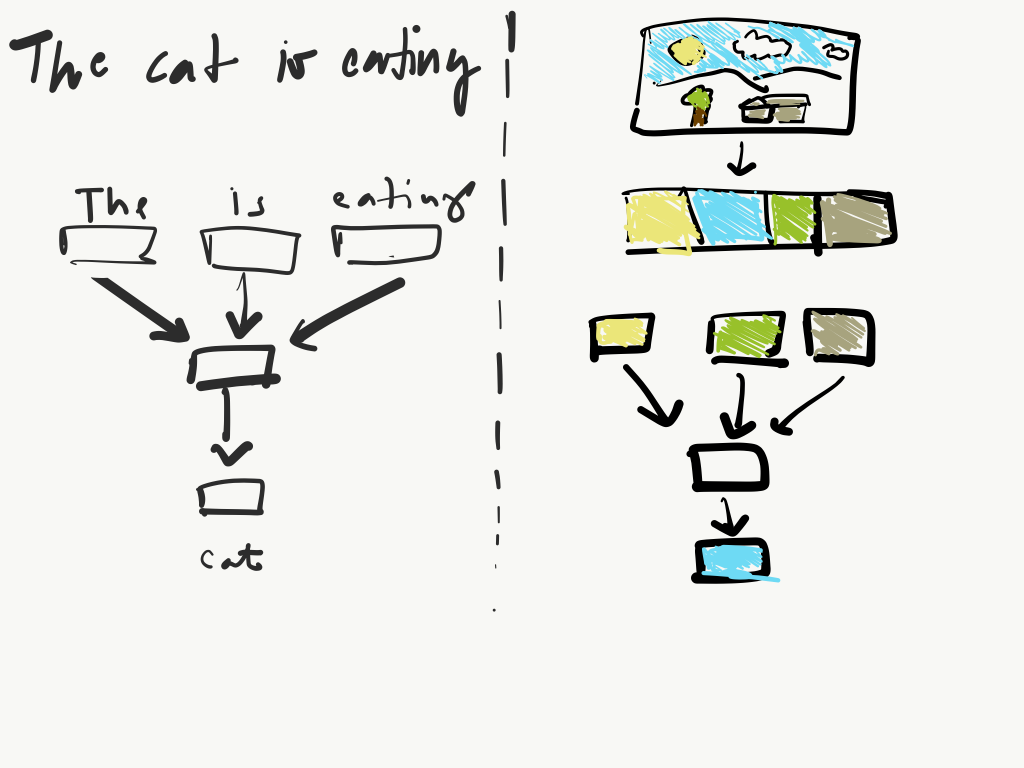 The cat is eating
The is eating
cat